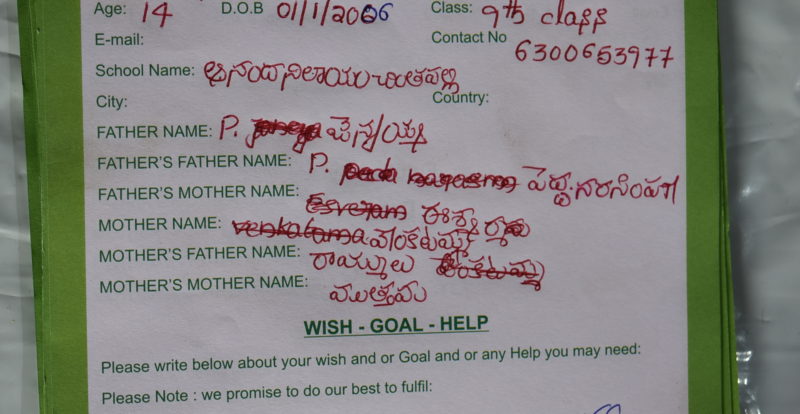 Age: 14 D.O.B 01/1/2006 Class: 9th class
E-mail: Contact No 6300653977
School Name: ఆనందనిలాయం చింతపల్లి
City: Country:
FATHER NAME: P. చెన్నయ్య
FATHER'S FATHER NAME: P. పెద్ద నరసింహ
FATHER'S MOTHER NAME: ఈశ్వరమ్మ
MOTHER NAME: వెంకటమ్మ
MOTHER'S FATHER NAME: రాములు
MOTHER'S MOTHER NAME:
WISH - GOAL - HELP
Please write below about your wish and or Goal and or any Help you may need:
Please Note : we promise to do our best to fulfil: